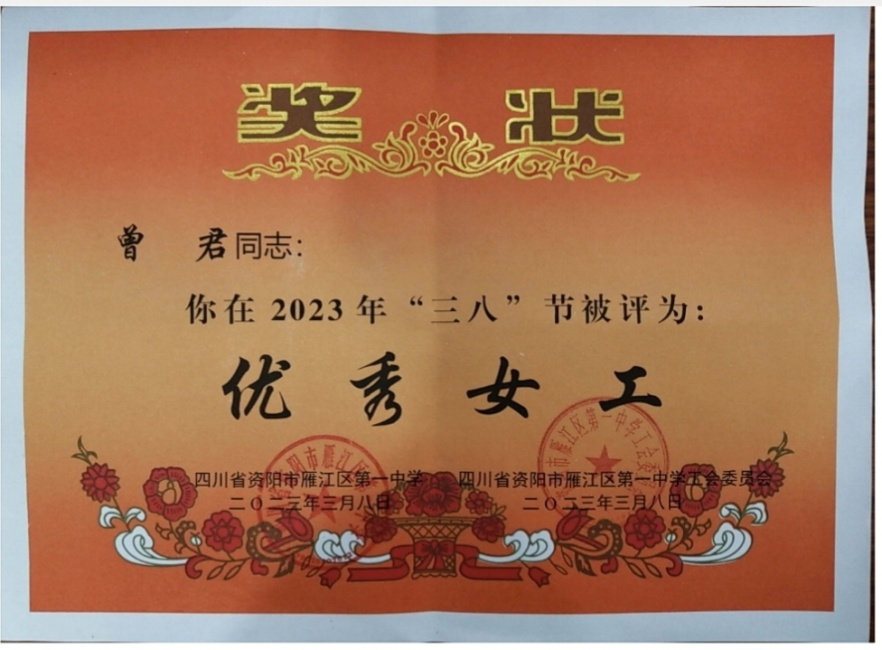 奖 状
曾 君同志：
你在 2023 年“三八”节被评为：
优 秀 女 工
四川省资阳市雁江区第一中学 四川省资阳市雁江区第一中学工会委员会
二〇二三年三月八日 二〇二三年三月八日